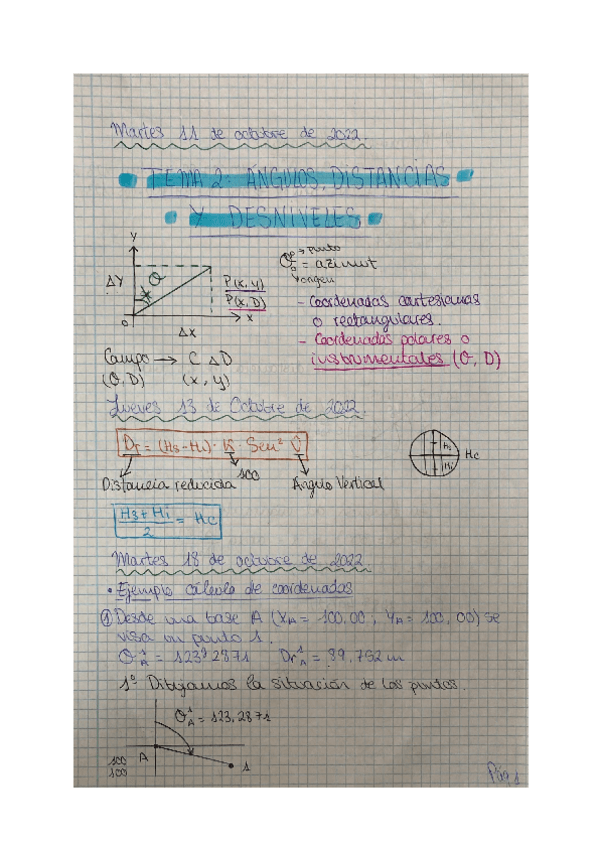 Martes 11 de octubre de 2022.
TEMA 2: ÁNGULOS, DISTANCIAS
Y DESNIVELES
Y
ΔY
θ
P(x, y)
P(x, D)
0
x
Δx
θ → punto
= azimut
origen
- Coordenadas cartesianas
o rectangulares.
- Coordenadas polares o
instrumentales (θ, D)
Campo → C A D
(θ, D) (x, y)
Jueves 13 de Octubre de 2022.
Dr = (Hs - Hi) · K · Sen² V
100
Distancia reducida
Ángulo Vertical
Hs
Hc
Hi
Hs + Hi / 2 = Hc
Martes 18 de octubre de 2022
• Ejemplo cálculo de coordenadas
① Desde una base A (XA = 100,00 ; YA = 100,00) se
visa un punto 1.
θ_A^1 = 123^g 2871 Dr_A^1 = 89,752 m
1º Dibujamos la situación de los puntos.
θ_A^1 = 123,2871
A
100
100
1
Pág 1